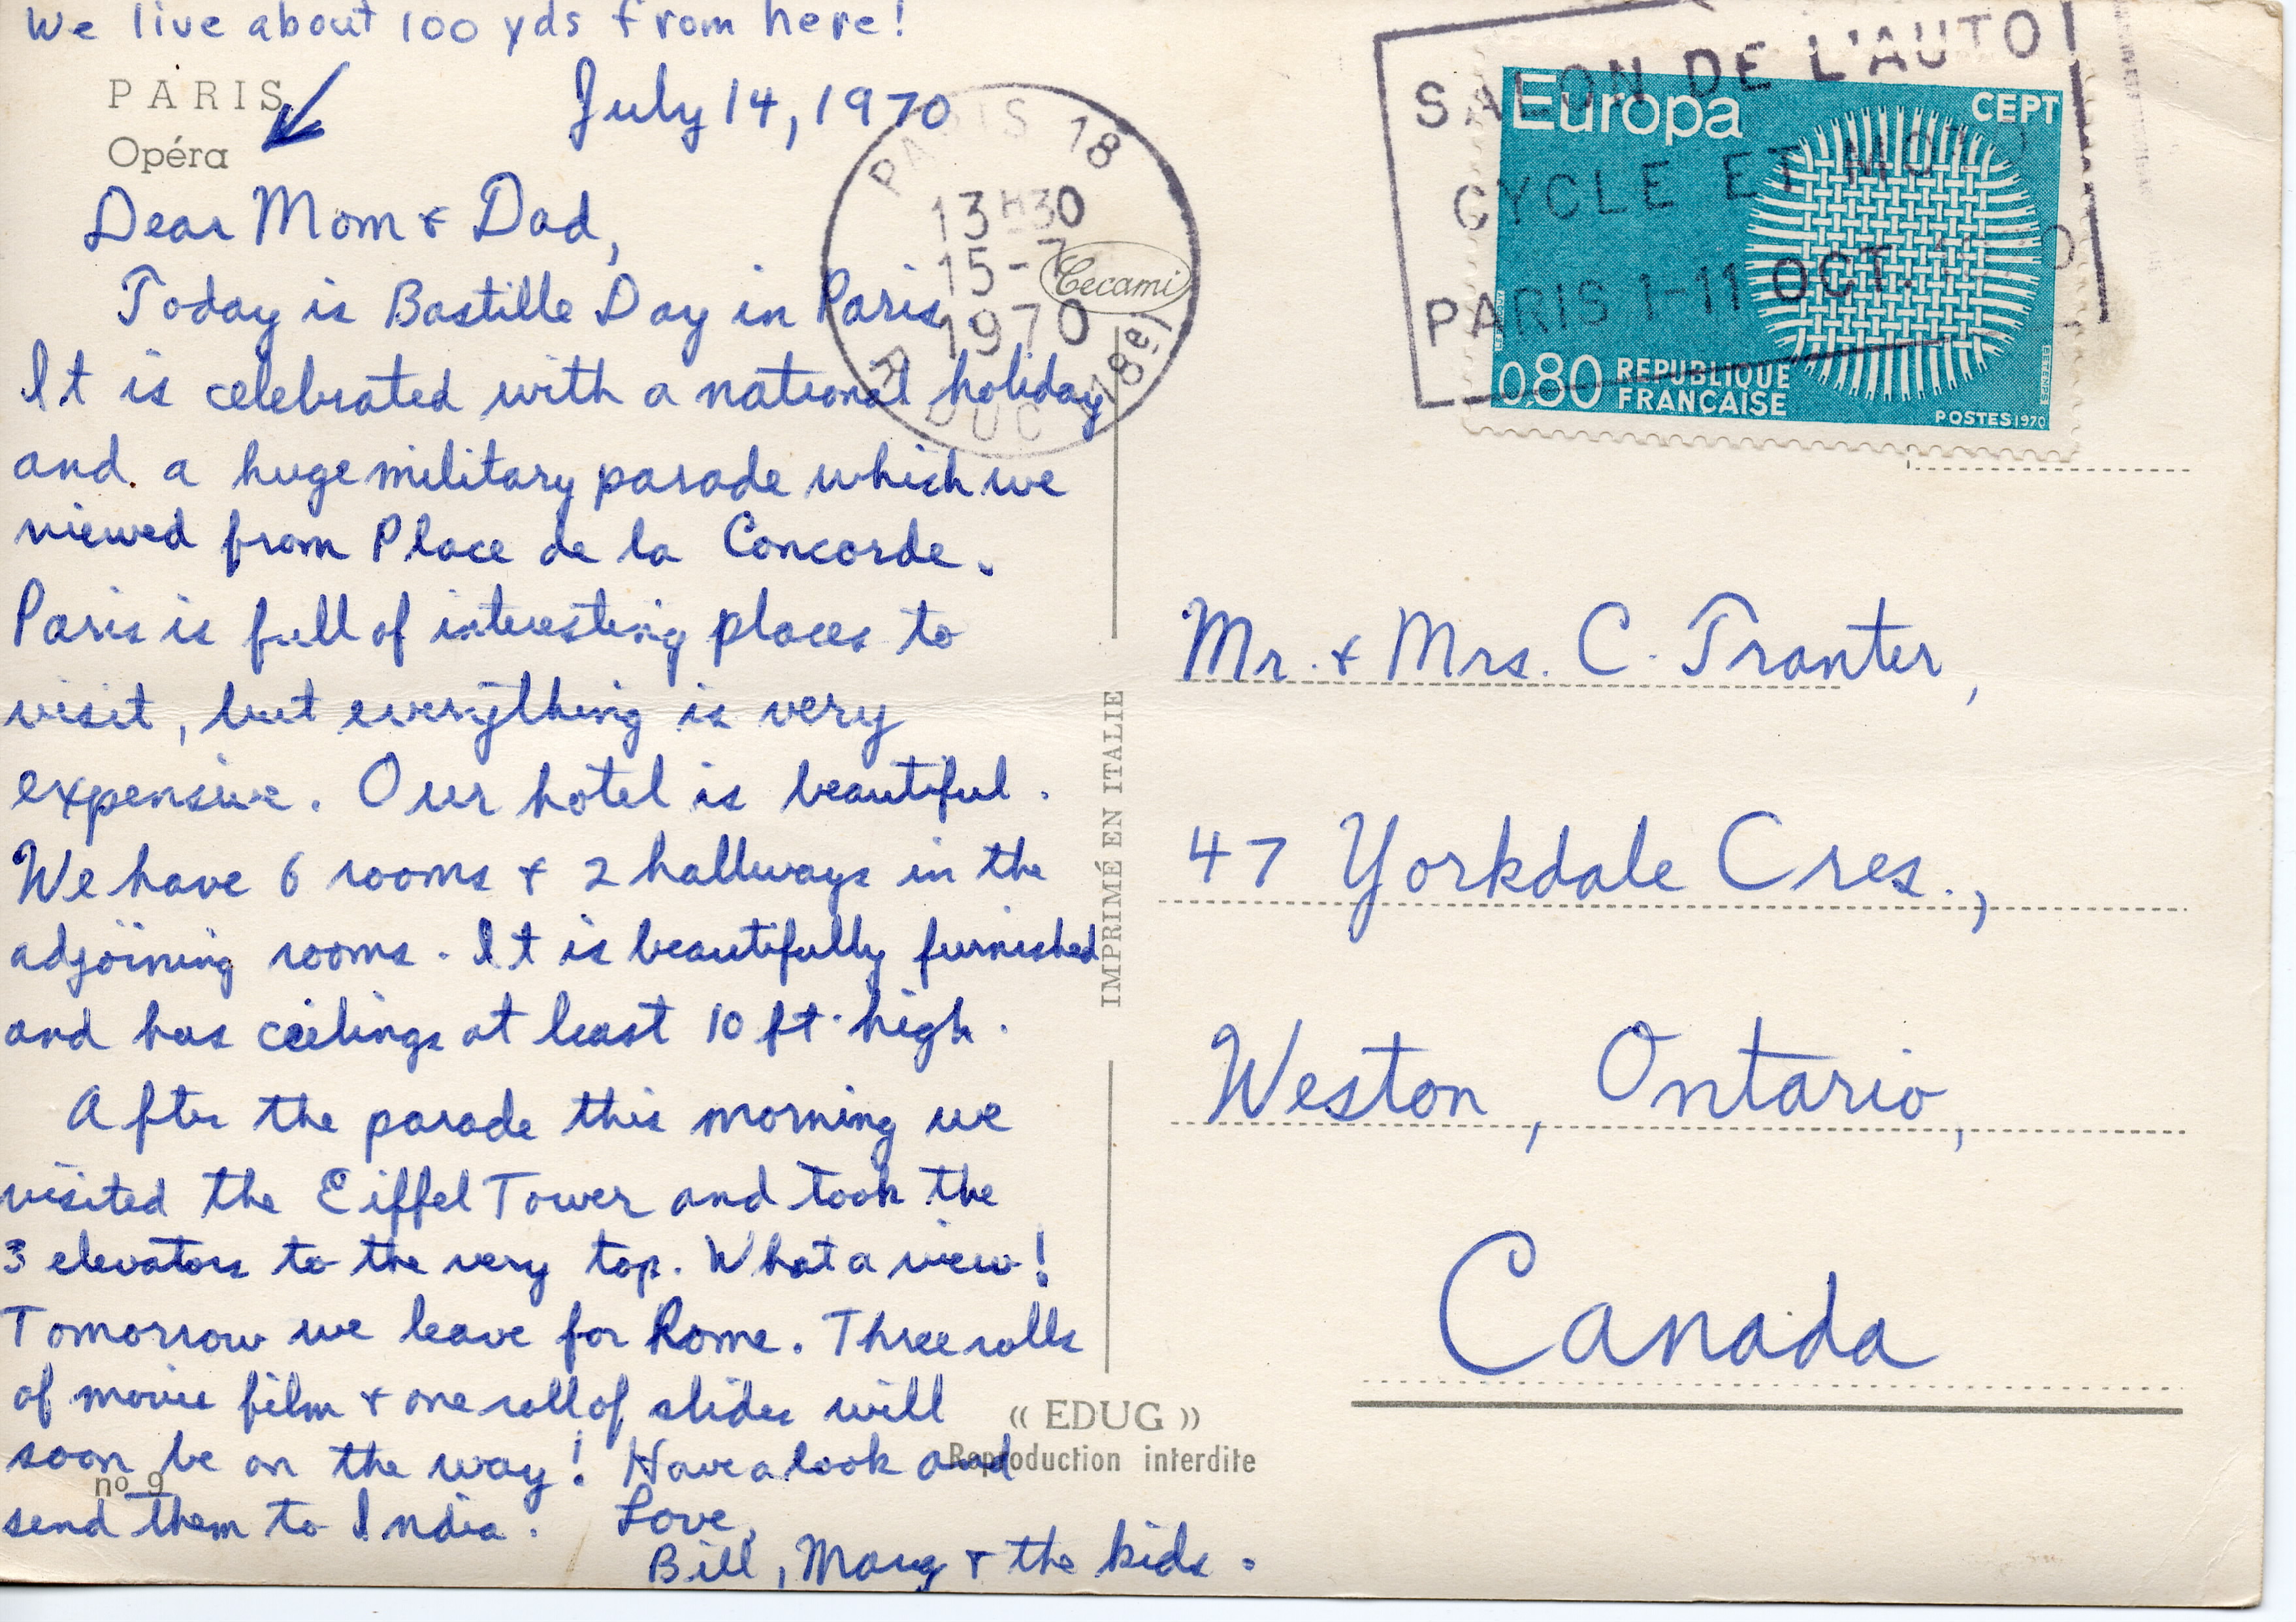 We live about 100 yds from here!
PARIS
Opéra
July 14, 1970
Dear Mom & Dad,
Today is Bastille Day in Paris.
It is celebrated with a national holiday
and a huge military parade which we
viewed from Place de la Concorde.
Paris is full of interesting places to
visit, but everything is very
expensive. Our hotel is beautiful.
We have 6 rooms & 2 hallways in the
adjoining rooms. It is beautifully furnished
and has ceilings at least 10 ft. high.
After the parade this morning we
visited the Eiffel Tower and took the
3 elevators to the very top. What a view!
Tomorrow we leave for Rome. Three rolls
of movie film & one roll of slides will
soon be on the way! Have a look and
send them to India. Love,
Bill, Marg & the kids.
nº 9
PARIS 18
13H30
15-7
1970
R DUC (18e)
Cecami
IMPRIMÉ EN ITALIE
« EDUG »
Reproduction interdite
SALON DE L'AUTO
CYCLE ET MOTO
PARIS 1-11 OCT. 1970
Europa
CEPT
0,80 REPUBLIQUE
FRANÇAISE
POSTES 1970
Mr. & Mrs. C. Tranter,
47 Yorkdale Cres.,
Weston, Ontario,
Canada